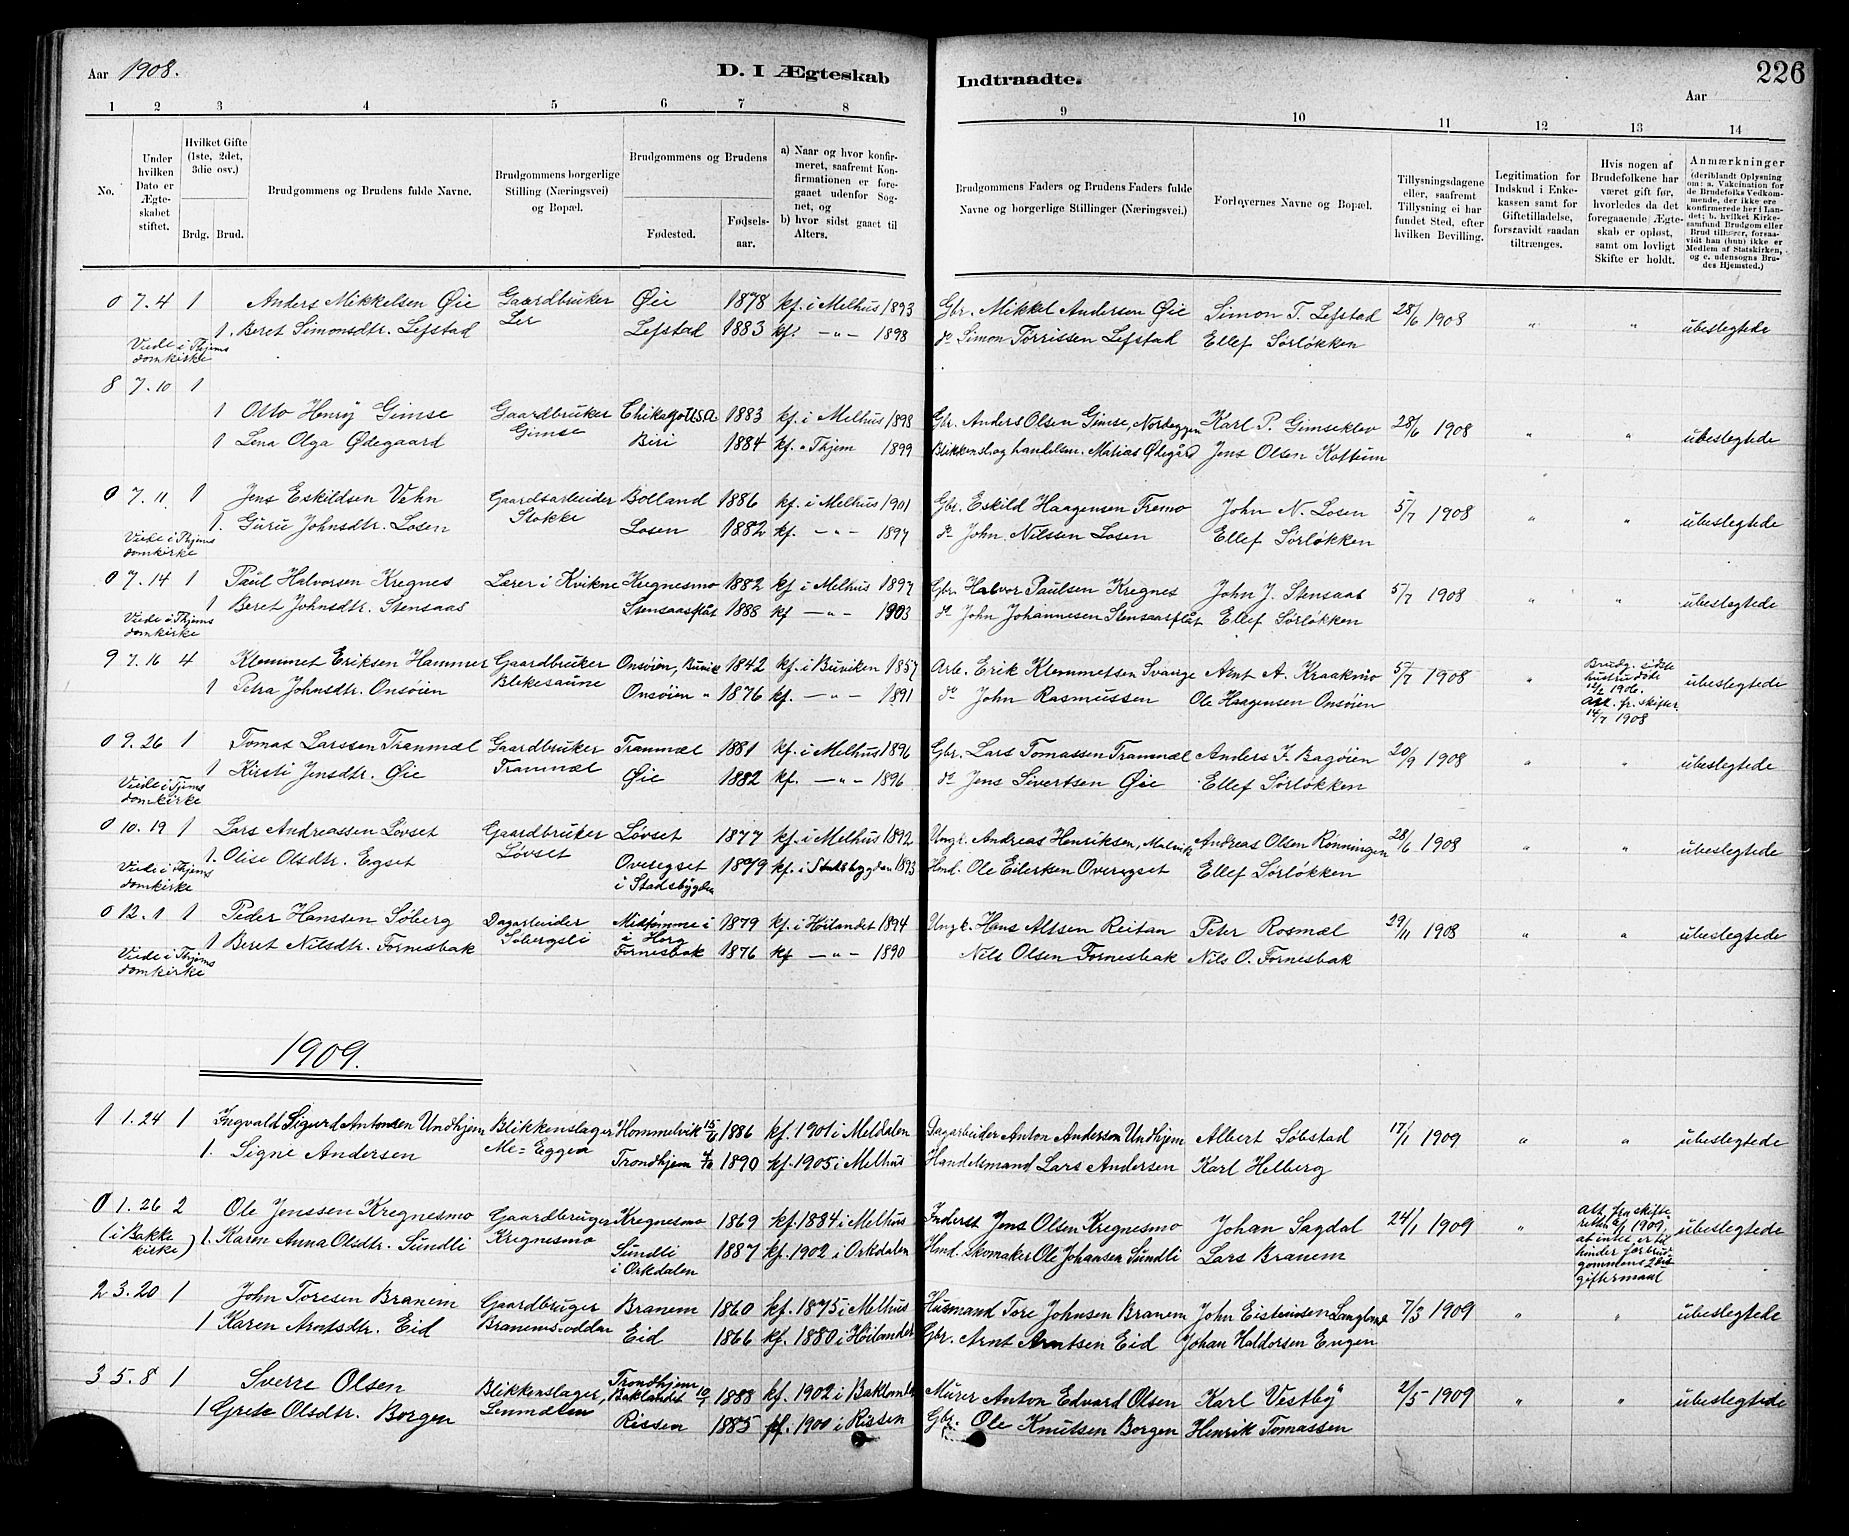 Aar 1908.
D. I Ægteskab
Indtraadte.
226
Aar
1 2 3 4 5 6 7 8 9 10 11 12 13 14
No.
Under hvilken Dato er Ægteskabet stiftet.
Hvilket Gifte (1ste, 2det, 3die osv.)
Brdg. Brud.
Brudgommens og Brudens fulde Navne.
Brudgommens borgerlige Stilling (Næringsvei) og Bopæl.
Brudgommens og Brudens
Fødested. Fødselsaar.
a) Naar og hvor konfirmeret, saafremt Konfirmationen er foregaaet udenfor Sognet, og
b) hvor sidst gaaet til Alters.
Brudgommens Faders og Brudens Faders fulde Navne og borgerlige Stillinger (Næringsvei.)
Forlovernes Navne og Bopæl.
Tillysningsdagene eller, saafremt Tillysning ei har fundet Sted, efter hvilken Bevilling.
Legitimation for Indskud i Enkekassen samt for Giftetilladelse, forsaavidt saadan tiltrænges.
Hvis nogen af Brudefolkene har været gift før, hvorledes da det foregaaende Ægteskab er opløst, samt om lovligt Skifte er holdt.
Anmærkninger (deriblandt Oplysning om: a. Vakcination for de Brudefolks Vedkommende, der ikke ere konfirmerede her i Landet; b. hvilket Kirkesamfund Brudgom eller Brud tilhører, forsaavidt han (hun) ikke er Medlem af Statskirken, og c. udensogns Brudes Hjemsted.)
0 7.4 1 Anders Mikkelsen Øie Gaardbruker Øie 1878 kf. i Melhus 1893 Gbr. Mikkel Andersen Øie Simon T. Lefstad 28/6 1908 " " ubeslegtede
1. Beret Simonsdtr. Lefstad Ler Lefstad 1883 kf. -"- 1898 do Simon Tørrissen Lefstad Ellef Sørløkken
Viede i Thjems domkirke
8 7.10 1
1 Otto Henry Gimse Gaardbruker Chikago U.S.A 1883 kf. i Melhus 1898 Gbr. Anders Olsen Gimse, Nordeggen Karl P. Gimseklev 28/6 1908 " " ubeslegtede
1 Lena Olga Ødegaard Gimse Biri 1884 kf. " Thjem 1899 Blikkensl. og handelsm. Matias Ødegård Jens Olsen Kattum
0 7.11 1 Jens Eskildsen Vehn Gaardsarbeider Bolland 1886 kf. i Melhus 1901 Gbr. Eskild Haagensen Tremo John N. Losen 5/7 1908 " " ubeslegtede
1. Guru Johnsdtr. Losen Stokke Losen 1882 kf. -"- 1897 do John Nilssen Losen Ellef Sørløkken
Viede i Thjems domkirke
0 7.14 1 Paul Halvorsen Kregnes Lærer i Kvikne Kregnesmo 1882 kf i Melhus 1897 Gbr. Halvor Paulsen Kregnes John J. Stensaas 5/7 1908 " " ubeslegtede
1 Beret Johnsdtr. Stensaas Stensaasflåt 1888 kf -"- 1903 do John Johannesen Stensaasflåt Ellef Sørløkken
Viede i Thjems domkirke
9 7.16 4 Klemmet Eriksen Hammer Gaardbruker Onsøien, Buvik 1842 kf. i Buviken 1857 Arb. Erik Klemmetsen Svange Arnt A. Kraakmo 5/7 1908 " ubeslegtede
1 Petra Johnsdtr. Onsøien Blekesaune Onsøien " 1876 kf. -"- 1891 do John Rasmussen Ole Haagensen Onsøien
Brudg. sidste hustru døde 12/2 1906. Att. fr. skifter. 14/7 1908
0 9.26 1 Tomas Larssen Tranmæl Gaardbruker Tranmæl 1881 kf. i Melhus 1896 Gbr. Lars Tomassen Tranmæl Anders J. Bagøien 20/9 1908 " " ubeslegtede
1 Kirsti Jensdtr. Øie Tranmæl Øie 1882 kf. -"- 1896 do Jens Sivertsen Øie Ellef Sørløkken
Viede i Tjems domkirke
0 10.19 1 Lars Andreassen Løvset Gaardbruker Løvset 1877 kf. i Melhus 1892 Ungk. Andreas Henriksen, Malvik Andreas Olsen Rønningen 28/6 1908 " " ubeslegtede
1. Olise Olsdtr. Egset Løvset Overegset i Stadsbygden 1879 kf. i Stadsbygden 1893 Hmd. Ole Eilersen Overegset Ellef Sørløkken
Viede i Thjems domkirke
0 12.1 1 Peder Hanssen Søberg Dagarbeider Midtømme i i Horg 1879 kf. i Høilandet 1894 Ungk. Hans Altsen Reitan Peter Rosmæl 29/11 1908 " " ubeslegtede
1 Beret Nilsdtr. Fornesbak Søbergsli Fornesbak 1876 kf -"- 1890 Nils Olsen Fornesbak Nils O. Fornesbak
Viede i Thjems domkirke
1909.
1 1.24 1 Ingvald Sigurd Antonsen Undhjem Blikkenslager Hommelvik 15/6 1886 kf. 1901 i Meldalen Dagarbeider Anton Anderson Undhjem Albert Søbstad 17/1 1909 " " ubeslegtede
1. Signe Andersen Me=Eggen Trondhjem 1890 kf. 1905 i Melhus Handelsmand Lars Andersen Karl Helberg
0 1.26 2 Ole Jenssen Kregnesmo Gaardbruger Kregnesmo 1869 kf. 1884 i Melhus Inderst Jens Olsen Kregnesmo Johan Sagdal 24/1 1909 " ubeslegtede
(i Bakke kirke) 1. Karen Anna Olsdtr. Sundli Kregnesmo Sundli i Orkdalen 1887 kf. 1902 i Orkdalen Hmd. skomaker Ole Johansen Sundli Lars Branem
Att. fra skifteretten 1909, at intet er til hinder for brudgommens 2det giftermaal
2 3.20 1 John Toresen Branem Gaardbruger Branem 1860 kf. 1875 i Melhus Husmand Tore Johnsen Branem John Eistensen Langland 7/3 1909 " " ubeslegtede
1 Karen Arntsdtr. Eid Branems-oddan Eid 1866 kf. 1880 i Høilandet Gbr. Arnt Arntsen Eid Johan Haldorsen Engen
3 5.8 1 Sverre Olsen Blikkenslager, Trondhjem Baklandet 10/7 1883 kf. 1902 i Baklandet Murer Anton Edvard Olsen Karl Vestby 2/5 1909 " " ubeslegtede
1 Grete Olsdtr. Borgen Rissen 1885 kf. 1900 i Rissen Gbr. Ole Knutsen Borgen Henrik Tomassen